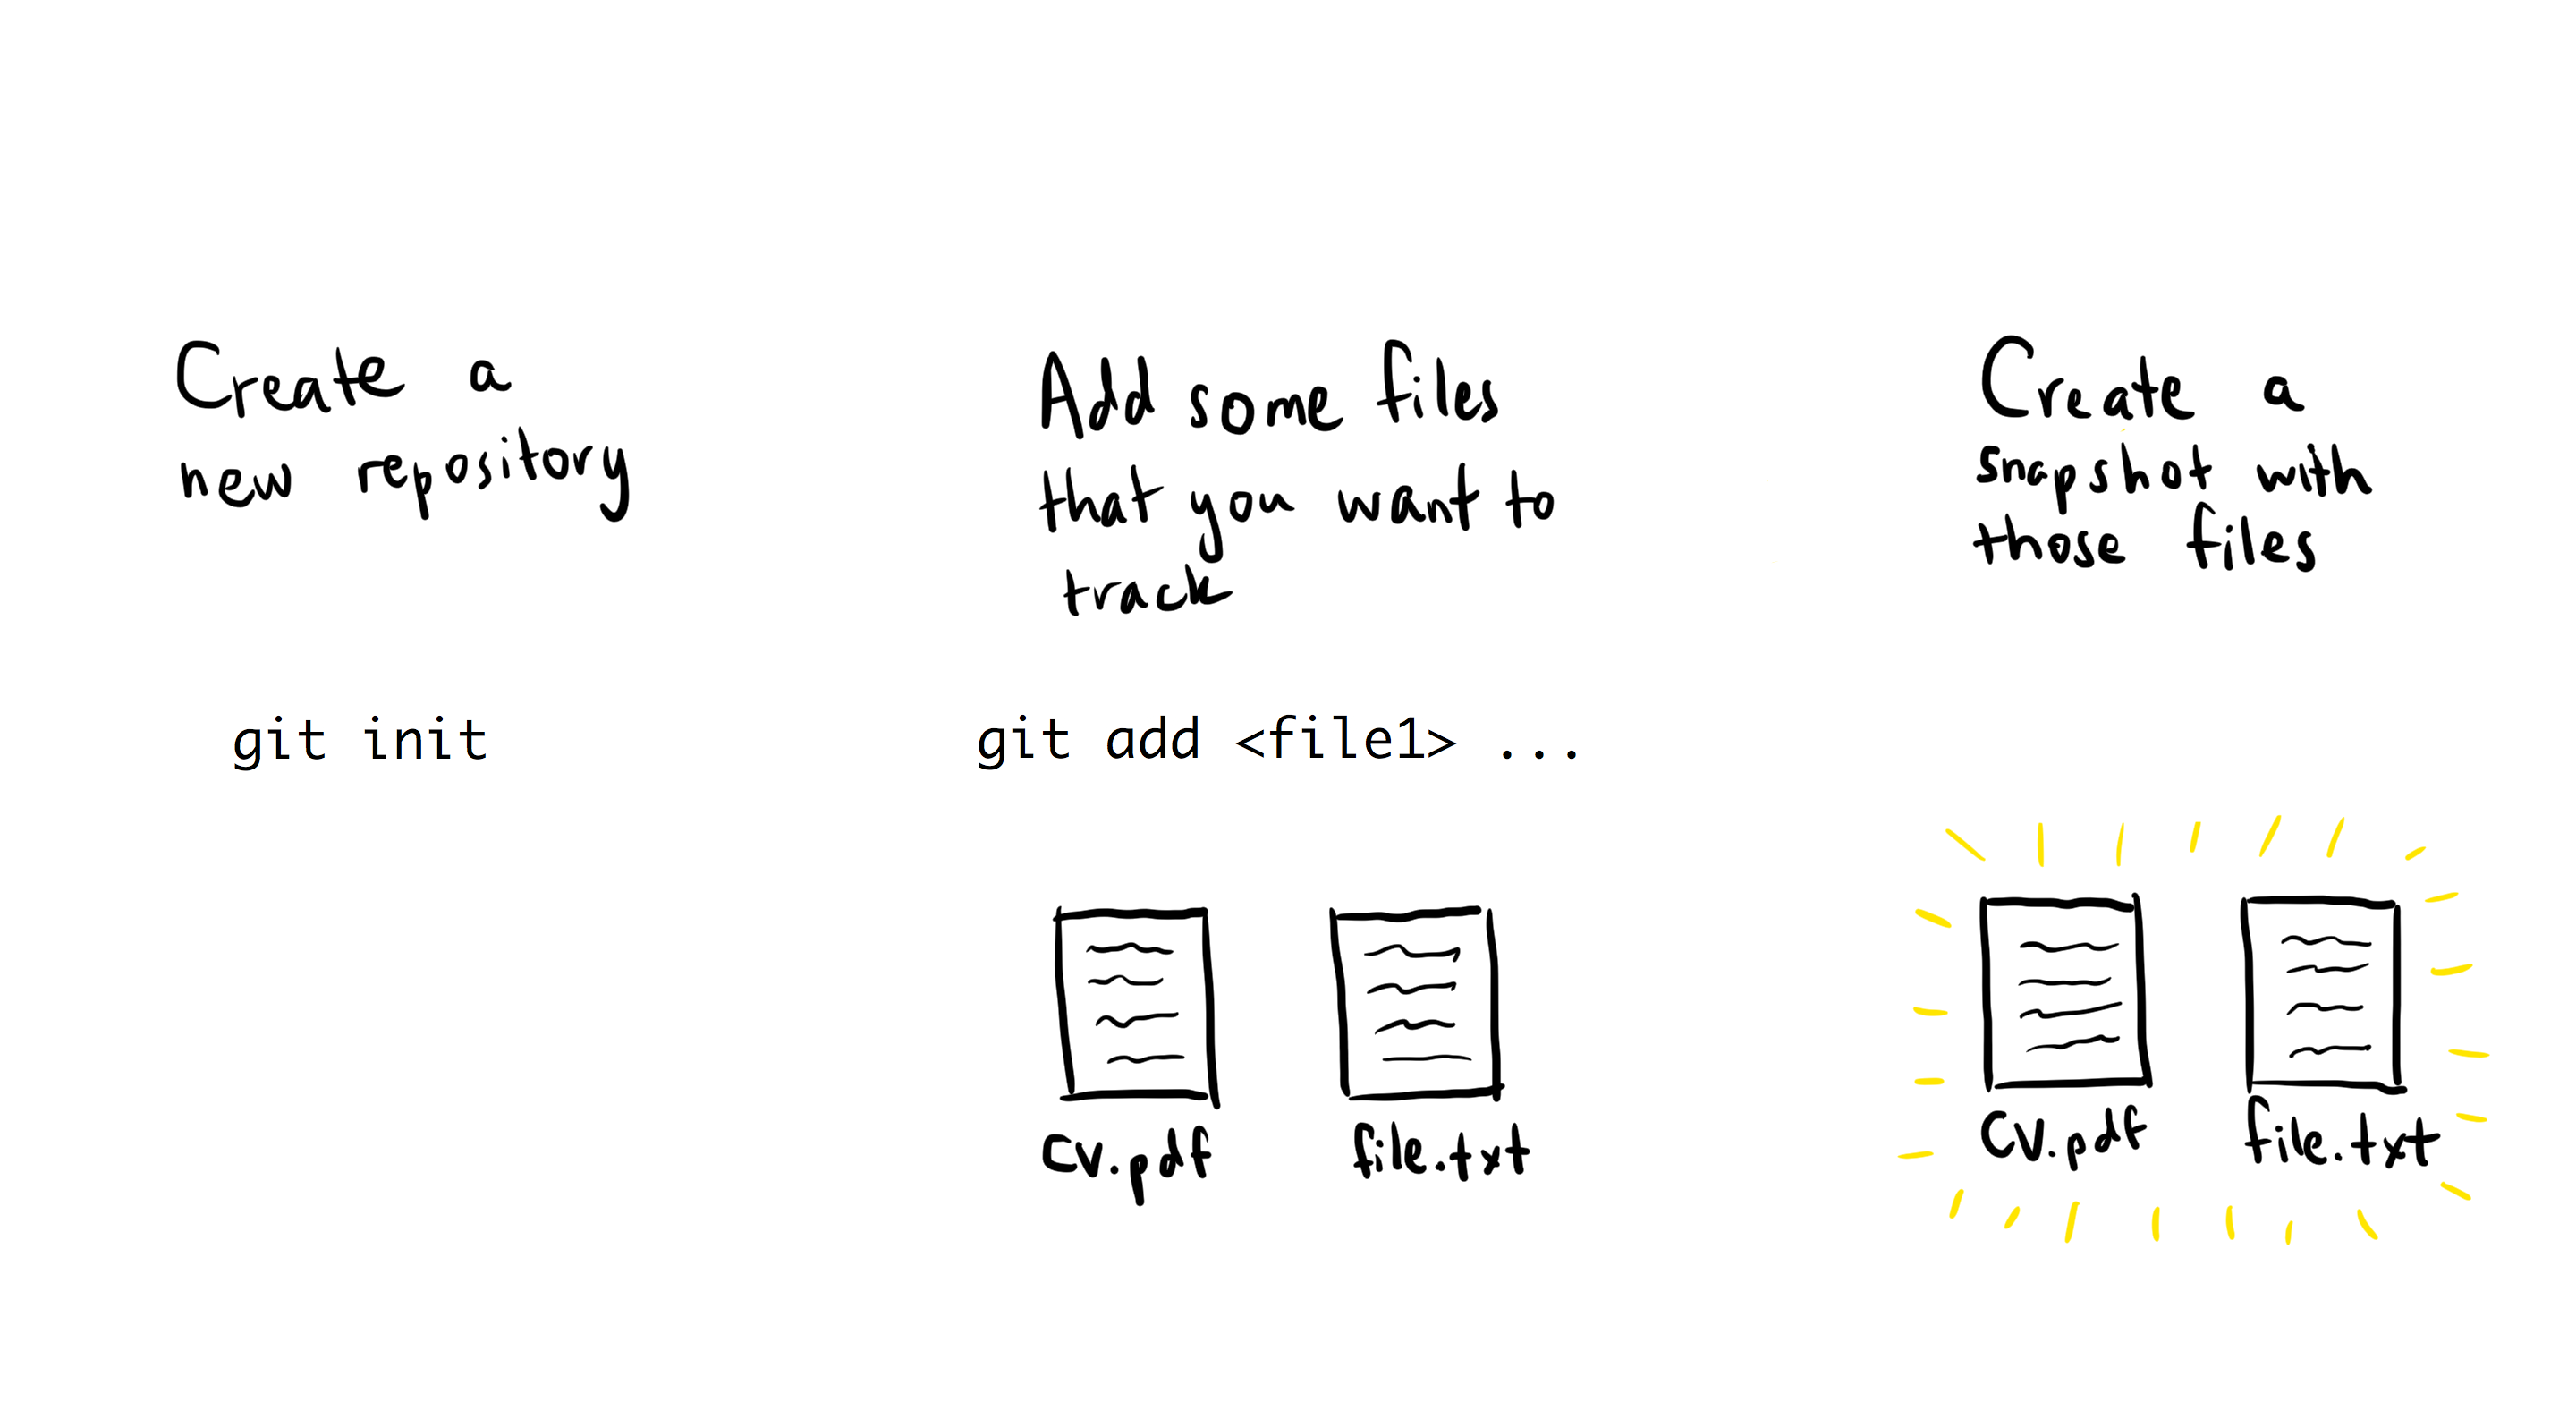 Create a
new repository
git init
Add some files
that you want to
track
git add <file1> ...
cv.pdf
file.txt
Create a
snapshot with
those files
cv.pdf
file.txt